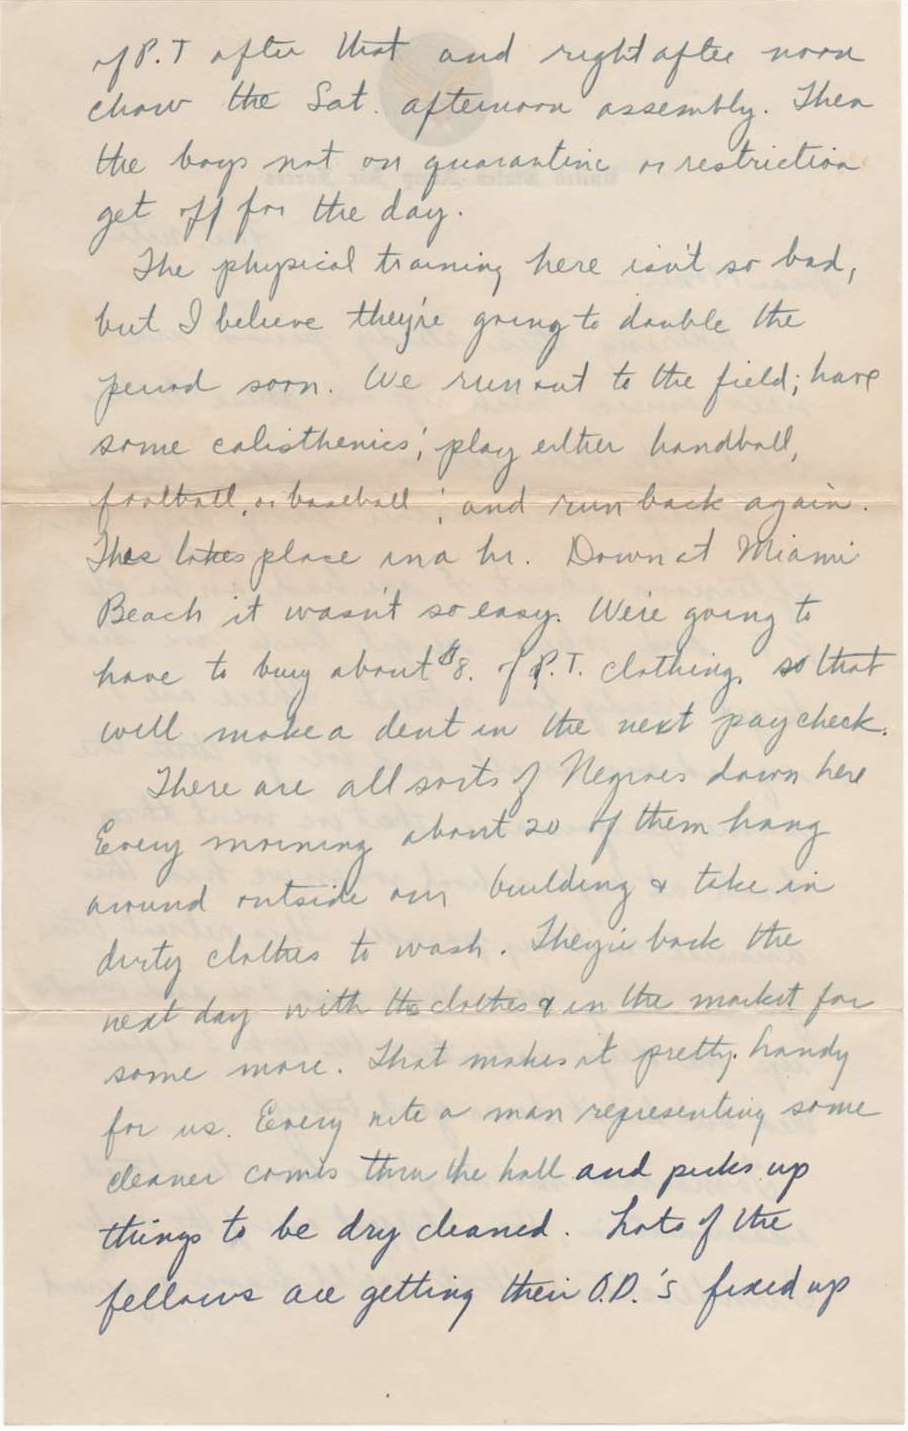 of P.T after that and right after noon
chow the Sat. afternoon assembly. Then
the boys not on quarantine or restriction
get off for the day.
The physical training here isn't so bad,
but I believe they're going to double the
period soon. We run out to the field; have
some calisthenics; play either handball,
football, or baseball; and run back again.
This takes place in a hr. Down at Miami
Beach it wasn't so easy. We're going to
have to buy about $8. of P.T. clothing, so that
will make a dent in the next paycheck.
There are all sorts of Negroes down here
Every morning about 20 of them hang
around outside our building & take in
dirty clothes to wash. They're back the
next day with the clothes & in the market for
some more. That makes it pretty handy
for us. Every nite a man representing some
cleaner comes thru the hall and picks up
things to be dry cleaned. Lots of the
fellows are getting their O.D.'s fixed up